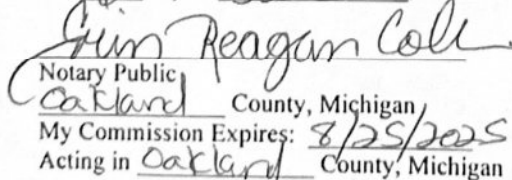 Erin Reagan Cole
Notary Public
Oakland County, Michigan
My Commission Expires: 8/25/2025
Acting in Oakland County, Michigan